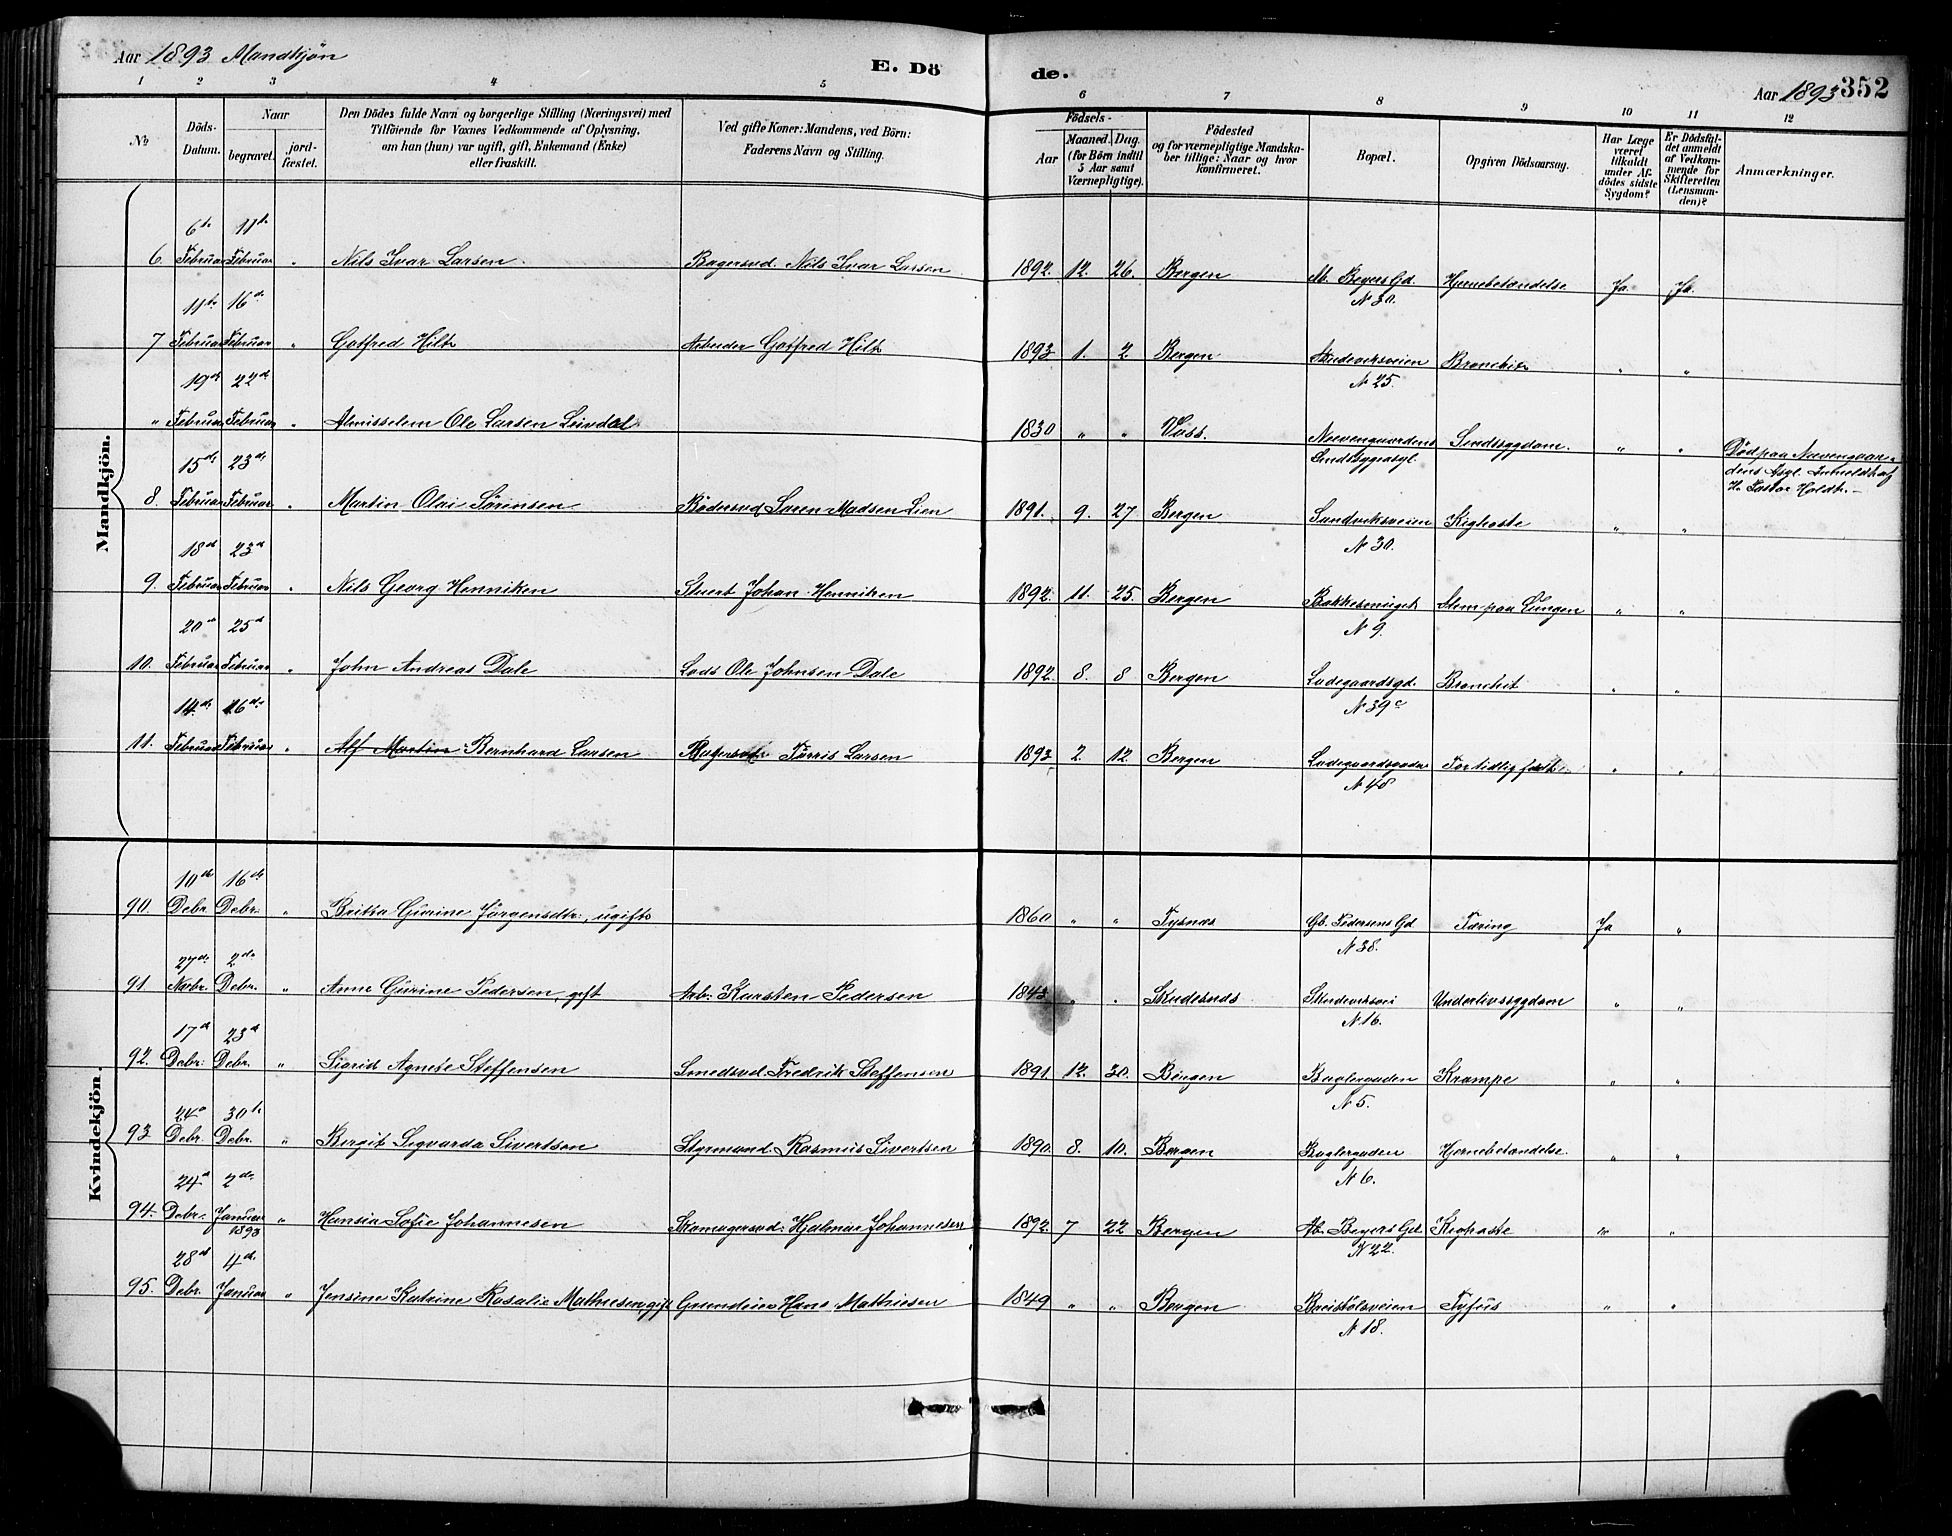 Aar 1893 Mandkjön
E. Dö de.
Aar 1893 352
1 2 3 4 5 6 7 8 9 10 11 12
No
Döds-Datum.
Naar
begravet.
jord-fæstet.
Den Dödes fulde Navn og borgerlige Stilling (Næringsvei) med
Tilföiende for Voxnes Vedkommende af Oplysning,
om han (hun) var ugift, gift, Enkemand (Enke)
eller fraskilt.
Ved gifte Koner: Mandens, ved Börn:
Faderens Navn og Stilling.
Födsels-
Aar
Maaned. Dag.
(for Börn indtil
5 Aar samt
Værnepligtige).
Födested
og for værnepligtige Mandska-
ber tillige: Naar og hvor
konfirmeret.
Bopæl.
Opgiven Dödsaarsag.
Har Læge
været
tilkaldt
under Af-
dödes sidste
Sygdom?
Er Dödsfal-
det anmeldt
af Vedkom-
mende for
Skifteretten
(Lensman-
den)?
Anmærkninger.
Mandkjön.
6te 11te
6. Februar Februar " Nils Ivar Larsen. Bagersvd. Nils Ivar Larsen 1892. 12. 26. Bergen M. Beyers Gd. Hjernebetændelse Ja. Ja.
N 30.
11te 16de
7 Februar Februar " Gotfred Hilt Arbeider Gotfred Hilt 1893 1. 2 Bergen Skudeviksveien Bronchit " "
N 25.
19de 22de
" Februar Februar " Almisselem Ole Larsen Leivdal 1830 " " Voss. Neevengaardens Sindssygdom. " " Död paa Neevengaar-
Sindssygeasyl. dens Asyl. Anmeldt af
H. Pastor Holdt.
15de 23de
8. Februar Februar " Martin Olai Sörensen Bödersvd Sören Madsen Lien 1891. 9. 27 Bergen Sandviksveien Kighoste " "
N 30.
18de 23de
9. Februar Februar " Nils Georg Henniken Stuert Johan Henniken 1892. 11. 25. Bergen Bakkesmuget Slem paa Lungen " "
N 9.
20de 25de
10. Februar Februar " John Andreas Dale Lods Ole Johnsen Dale 1892. 8. 8 Bergen Ladegaardsgd. Bronchit " "
N 39c
14de 16de
11. Februar Februar " Alf Martin Bernhard Larsen Bagersvd. Törris Larsen 1893 2. 12. Bergen Ladegaardsgaden For tidlig födt. " "
N 48
Kvindekjön.
10de 16de
90. Debr. Debr. " Britta Gurine Jörgensdtr, ugift 1860 " " Tysnes Gb. Pedersens Gd Tæring Ja "
N 38.
27de 2de
91 Novbr. Debr. " Anne Gurine Pedersen, gift Arb. Karsten Pedersen 1843 " " Skudesnes Skudeviksvei Underlivssygdom " "
N 16.
17de 23de
92. Debr. Debr. " Sigrid Agnete Steffensen Smedsvd. Fredrik Steffensen 1891. 12. 30. Bergen Baglergaden Krampe " "
N 5.
24de 30te
93 Debr. Debr. " Bergit Sigvarda Sivertsen Styrmand. Rasmus Sivertsen 1890. 8. 10. Bergen Baglergaden Hjernebetændelse. " "
N 6.
24de 2de
94. Debr. Januar 1893 " Hansia Sofie Johannesen Skomagersvd. Hjalmar Johannesen 1892. 7 22 Bergen Ab. Beyers Gd. Kighoste " "
N 22.
28de 4de
95. Debr. Januar " Jensine Katrine Rosalie Mathiesen, gift Hans Mathiesen 1849 " " Bergen Breistölsveien Tyfus " "
N 18.